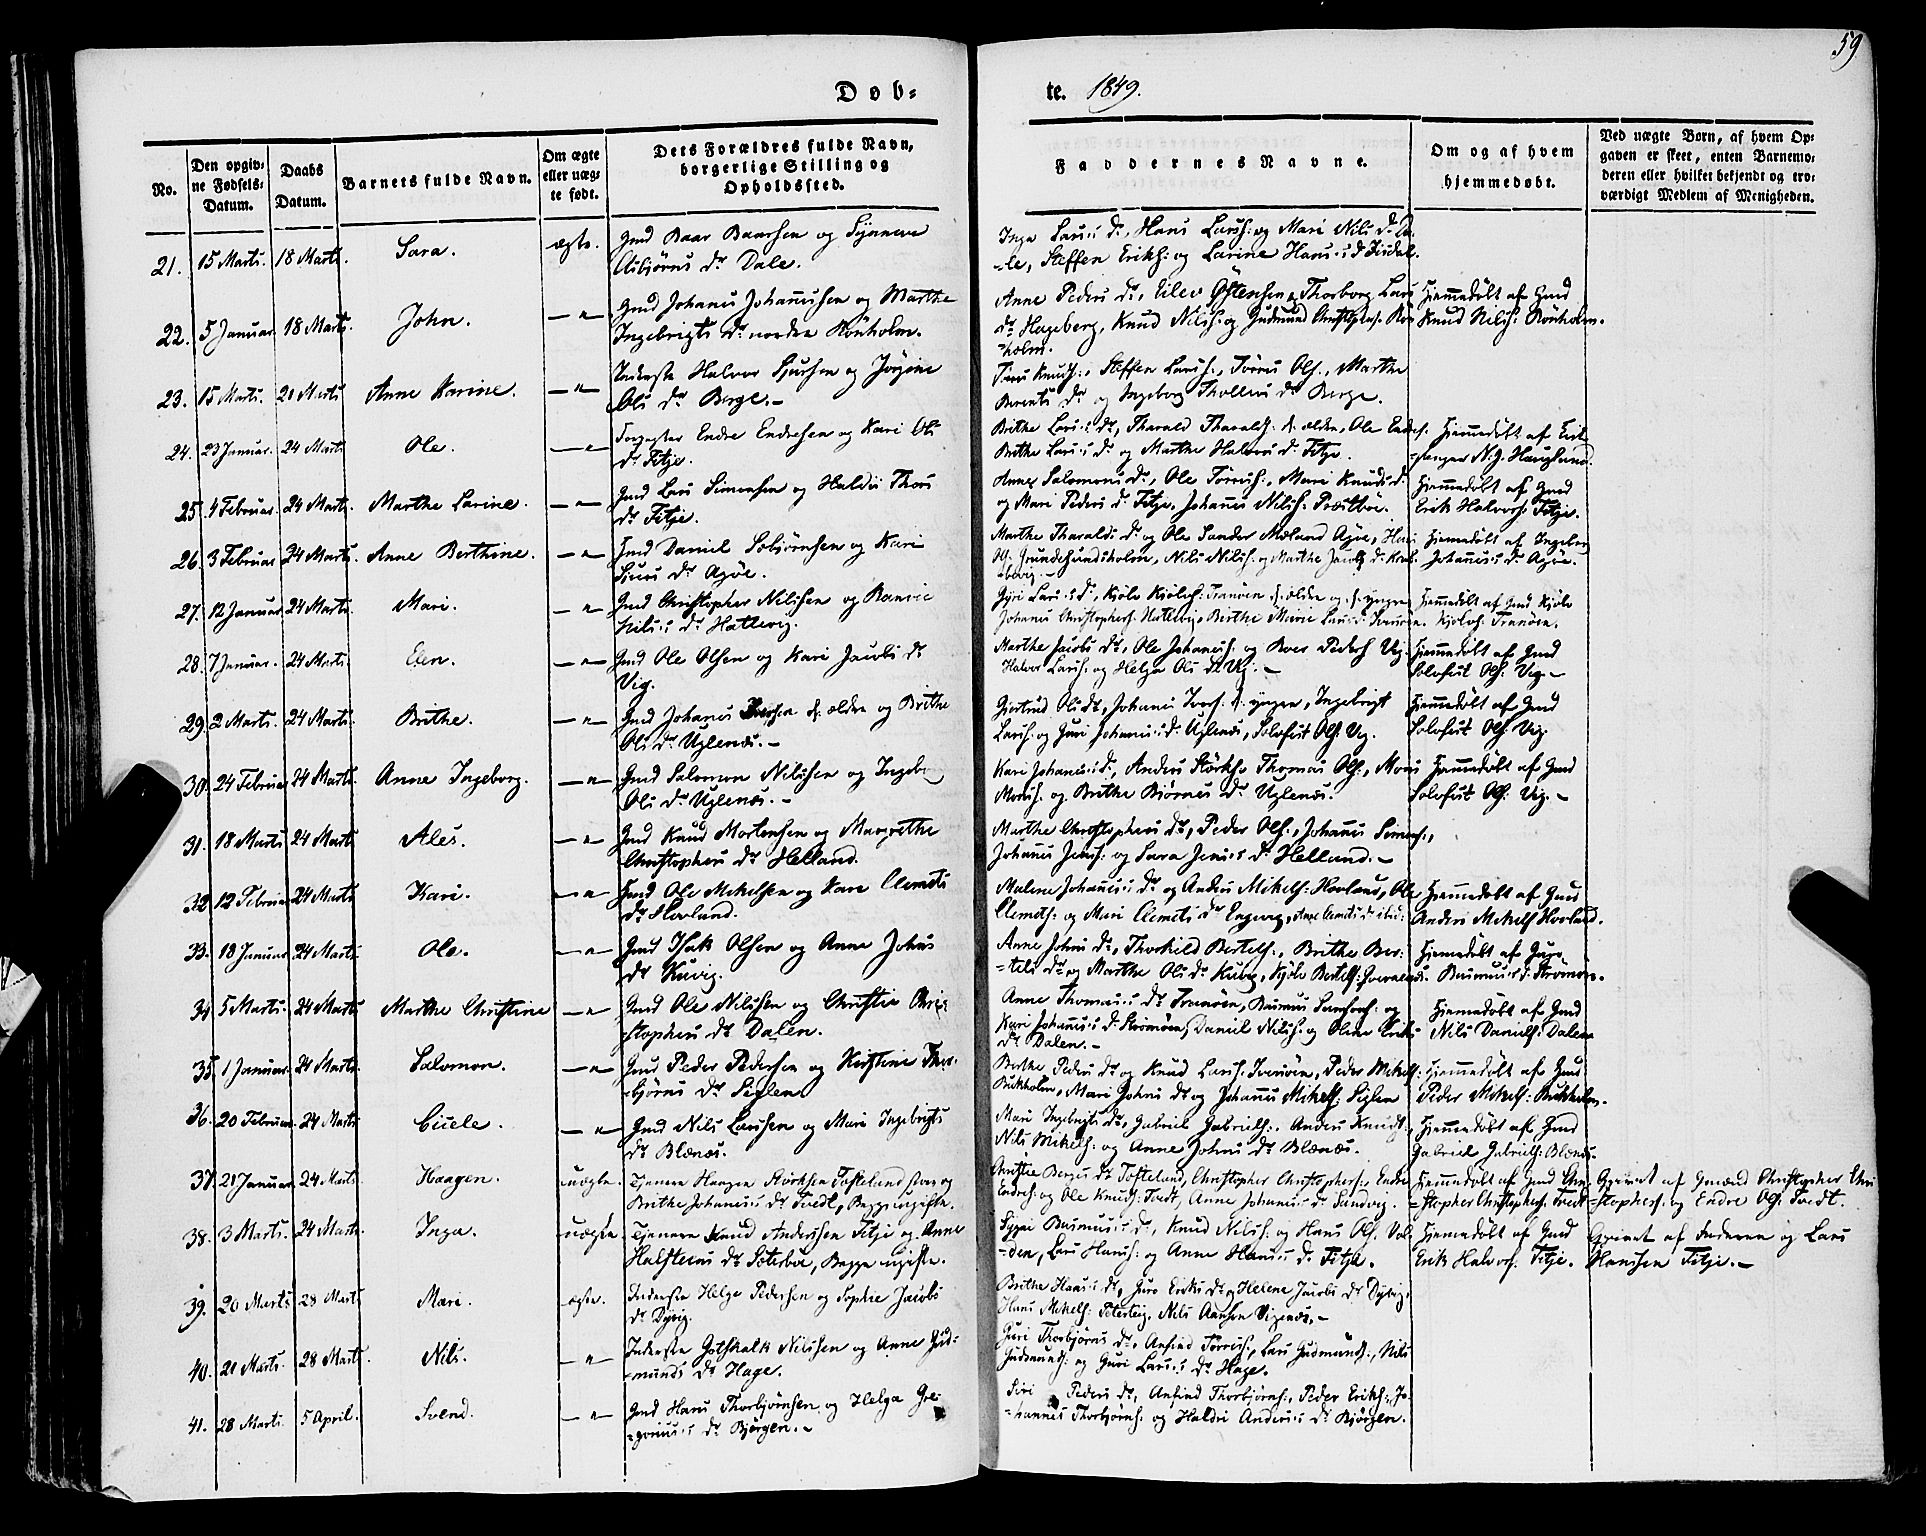 59
Døb-
te. 1849.
No.
Den opgiv-
ne Fødsels-
Datum.
Daabs
Datum.
Barnets fulde Navn.
Om ægte
eller uæg-
te født.
Dets Forældres fulde Navn,
borgerlige Stilling og
Opholdssted.
Faddernes Navne.
Om og af hvem
hjemmedøbt.
Ved uægte Børn, af hvem Op-
gaven er skeet, enten Barnemo-
deren eller hvilket bekjendt og tro-
værdigt Medlem af Menigheden.
21. 15 Marts. 18 Marts. Sara. ægte. Gmd Baar Baarsen og Synneva
Asbjørns Dr Dale.
Inga Lars's Dr, Hans Larss: og Mari Nils Dr Da-
-le, Steffen Eriks: og Larine Hans's Dr
22. 5 Januar. 18 Marts. John. — " — Gmd Johanes Johanesen og Marthe
Ingebrigts Dr nordre Rönholm.
Anne Peders Dr, Eilev Østensen, Thorborg Lars
Dr Hageberg, Knud Nils: og Gudmund Christophers: Rön-
-holm.
Hjemmedøbt af Gmd
Knud Nils: Rönholm.
23. 15 Marts. 21 Marts Anne Karine. — " — Inderste Halvor Sjursen og Jørgine
Ols Dr Berge. —
Knuds:, Steffen Lars:, Tørres Ols:, Marthe
Berents Dr og Ingeborg Dr Berge.
24. 23 Januar. 24 Marts Ole. — " — Endre Endresen og Kari Ols
Dr Fitje.
Brithe Lars's Dr, Tharald Tharalds: d. ældre, Ole Endres:
Brithe Lars's Dr og Marthe Halvors Dr Fitje.
Hjemmedøbt af
N. J. Haugland.
25. 4 Februar. 24 Marts. Marthe Larine. — " — Gmd Lars Simonsen og Haldis Thors
Dr Fitje.
Anne Salomons Dr, Ole Tørris:, Mari Knuds Dr
og Mari Peders Dr Fitje, Johanes Nils: Prestbøe.
Hjemmedøbt af Gmd
Erik Halvors: Fitje.
26. 3 Februar 24 Marts. Anne Berthine. — " — Gmd Daniel og Kari
Sjurs Dr Agøe.
Marthe Tharalds Dr og Ole Sander Mæland Agøe, Hans
Ols: Nils Nils: og Marthe Jacobs Dr
Hjemmedøbt af Ingebor
Johanes's Dr Agøe.
27. 12 Januar. 24 Marts. Mari. — " — Gmd Christopher Nilssen og
Nils's Dr Hattevig.
Guri Lars's Dr, Kjøle Kjøles: Tranøen d. ældre og d. yngre,
Johanes Christophers: Hattevig, Brithe Marie Lars's Dr Iversøen.
Hjemmedøbt af Gmd Kjøle
Kjøles: Tranøen.
28. 7 Januar. 24 Marts. Elen. — " — Gmd Ole Olsen og Kari Jacobs Dr
Vig.
Marthe Jacobs Dr, Ole Johanes: og Boer Peders: Vig.
Halvor Lars: og Helga Ols Dr Vig. —
Hjemmedøbt af Gmd
Solofest Ols: Vig. —
29. 2 Marts. 24 Marts. Brithe. — " — Gmd Johanes Iversen d. ældre og Brithe
Ols Dr Uglenæs. —
Gjertrud Ols Dr, Johanes Ivers: d. yngre, Ingebrigt
Lars: og Guri Johanes's Dr Uglenæs, Solofest Ols: Vig.
Hjemmedøbt af Gmd
Solofest Ols: Vig.
30. 24 Februar 24 Marts. Anne Ingeborg. — " — Gmd Salomon Nilssen og Ingebor
Ols Dr Uglenæs. —
Kari Johanes's Dr, Anders Størks: Thomas Ols:, Mons
Mons: og Brithe Bjørnes Dr Uglenæs.
Hjemmedøbt af Gmd
Solofest Ols: Vig. —
31. 18 Marts 24 Marts Ales. — " — Gmd Knud Mortensen og Margrethe
Christophers Dr Helland.
Marthe Christophers Dr, Peder Ols:, Johanes Simons:,
Johanes Jens: og Sara Jens's Dr Helland. —
32. 12 Februar 24 Marts Kari. — " — Gmd Ole Mikelsen og Kari Clemets
Dr Hovland.
Malene Johanes's Dr og Anders Mikels: Hovland, Ole
Clemets: og Mari Clemets Dr Engevig, Anne Clemets Dr ibid:
Hjemmedøbt af Gmd
Anders Mikels: Hovland.
33. 18 Januar 24 Marts. Ole. — " — Gmd Isak Olsen og Anne Johns
Dr Kuvig.
Anne Johns Dr, Thorkild Bertels:, Brithe Ber-
-tels Dr og Marthe Ols Dr Kuvig, Kjøle Bertels:
Hjemmedøbt af Guro
Rasmus's Dr Strømøen.
34. 5 Marts. 24 Marts Marthe Christine — " — Gmd Ole Nilssen og Christie Chri-
-stophers Dr Dalen.
Anne Thomas's Dr Tranøen, Rasmus og
Kari Johanes's Dr Strømøen, Daniel Nils: og Oline Eriks
Dr Dalen. —
Hjemmedøbt af Gmd
Nils Daniels: Dalen
35. 1 Januar. 24 Marts. Salomon. — " — Gmd Peder Pedersen og Kirstine Thor-
-bjørns Dr Siglen
Berthe Peders Dr og Knud Lars: Iversøen, Peder Mikels:
Bukholm, Mari Johns Dr og Johanes Mikels: Siglen
Hjemmedøbt af Gmd
Peder Mikels: Bukholm.
36. 20 Februar. 24 Marts — " — Gmd Nils Larssen og Mari Ingebrigts
Dr Blænæs.
Mari Ingebrigts Dr, Gabriel Gabriels:, Anders Knuds:,
Nils Mikels: og Anne Johns Dr Blænæs.
Hjemmedøbt af Gmd
Gabriel Gabriels: Blænæs.
37. 21 Januar 24 Marts. Haagen. uægte. Tjenere Haagen Størksen Tofteland og
Brithe Johanes's Dr Tvedt, Begge ugifte.
Christie Berges Dr Tofteland, Christopher Christophers:, Endre
Endres: og Ole Knuds: Tvedt, Anne Johanes's Dr Sandvig.
Hjemmedøbt af Gmd Chri-
-stopher Christophers: Tvedt
Opgivet af Gmænd Christopher Chri
-stophers: og Endre Ols: Tvedt.
38. 3 Marts. 24 Marts Inga. uægte Tjenere Knud Anderssen Fitje og Anne
Halsteins Dr Sæterbøe, Begge ugifte.
Rasmus's Dr, Knud Nils: og Hans Ols: Val-
-den, Lars Hans: og Anne Hans's Dr Fitje.
Hjemmedøbt af Gmd
Erik Halvors: Fitje.
Opgivet af Faderen og Lars
Hanssen Fitje. —
39. 20 Marts 28 Marts Mari. ægte. Inderste Helge Pedersen og Sophie Jacobs
Dr Dyvig.
Brithe Hans's Dr, Guro Eriks Dr og Helene Jacobs Dr Dyvig,
Hans Mikels: Nils Aansen Vigenæs. —
40. 21 Marts. 28 Marts. Nils. — " — Inderste Gotskalk Nilssen og Anne Gud-
-munds Dr Hage.
Guri Thorbjørns Dr, Anfind Tørres:, Lars Gudmunds:, Nils
Gudmunds: og Guri Lars's Dr Hage.
41. 28 Marts. 5 April. Svend. — " — Gmd Hans Thorbjørnsen og Helga Gre-
-gorius's Dr Bjørgen. —
Siri Peders Dr, Anfind Thorbjørns:, Peder Eriks:, Jo-
-hannes Thorbjørns: og Haldri Anders's Dr Bjørgen.